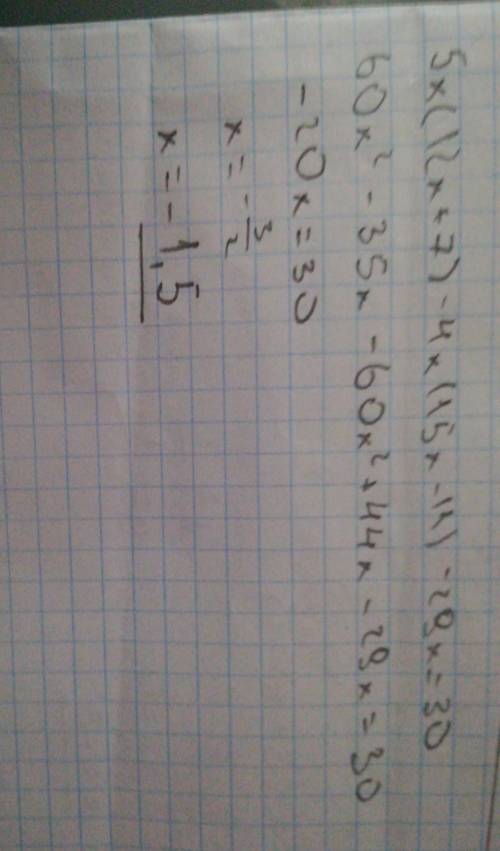 5x(12x+7)-4x(15x-11)-29x=30
60x²-35x-60x²+44x-29x=30
-20x=30
x=-3/2
x=-1,5